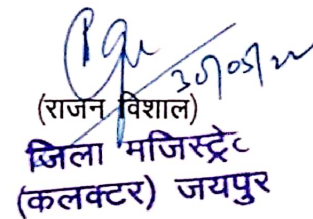 30/05/22
(राजन विशाल)
जिला मजिस्ट्रेट
(कलक्टर) जयपुर